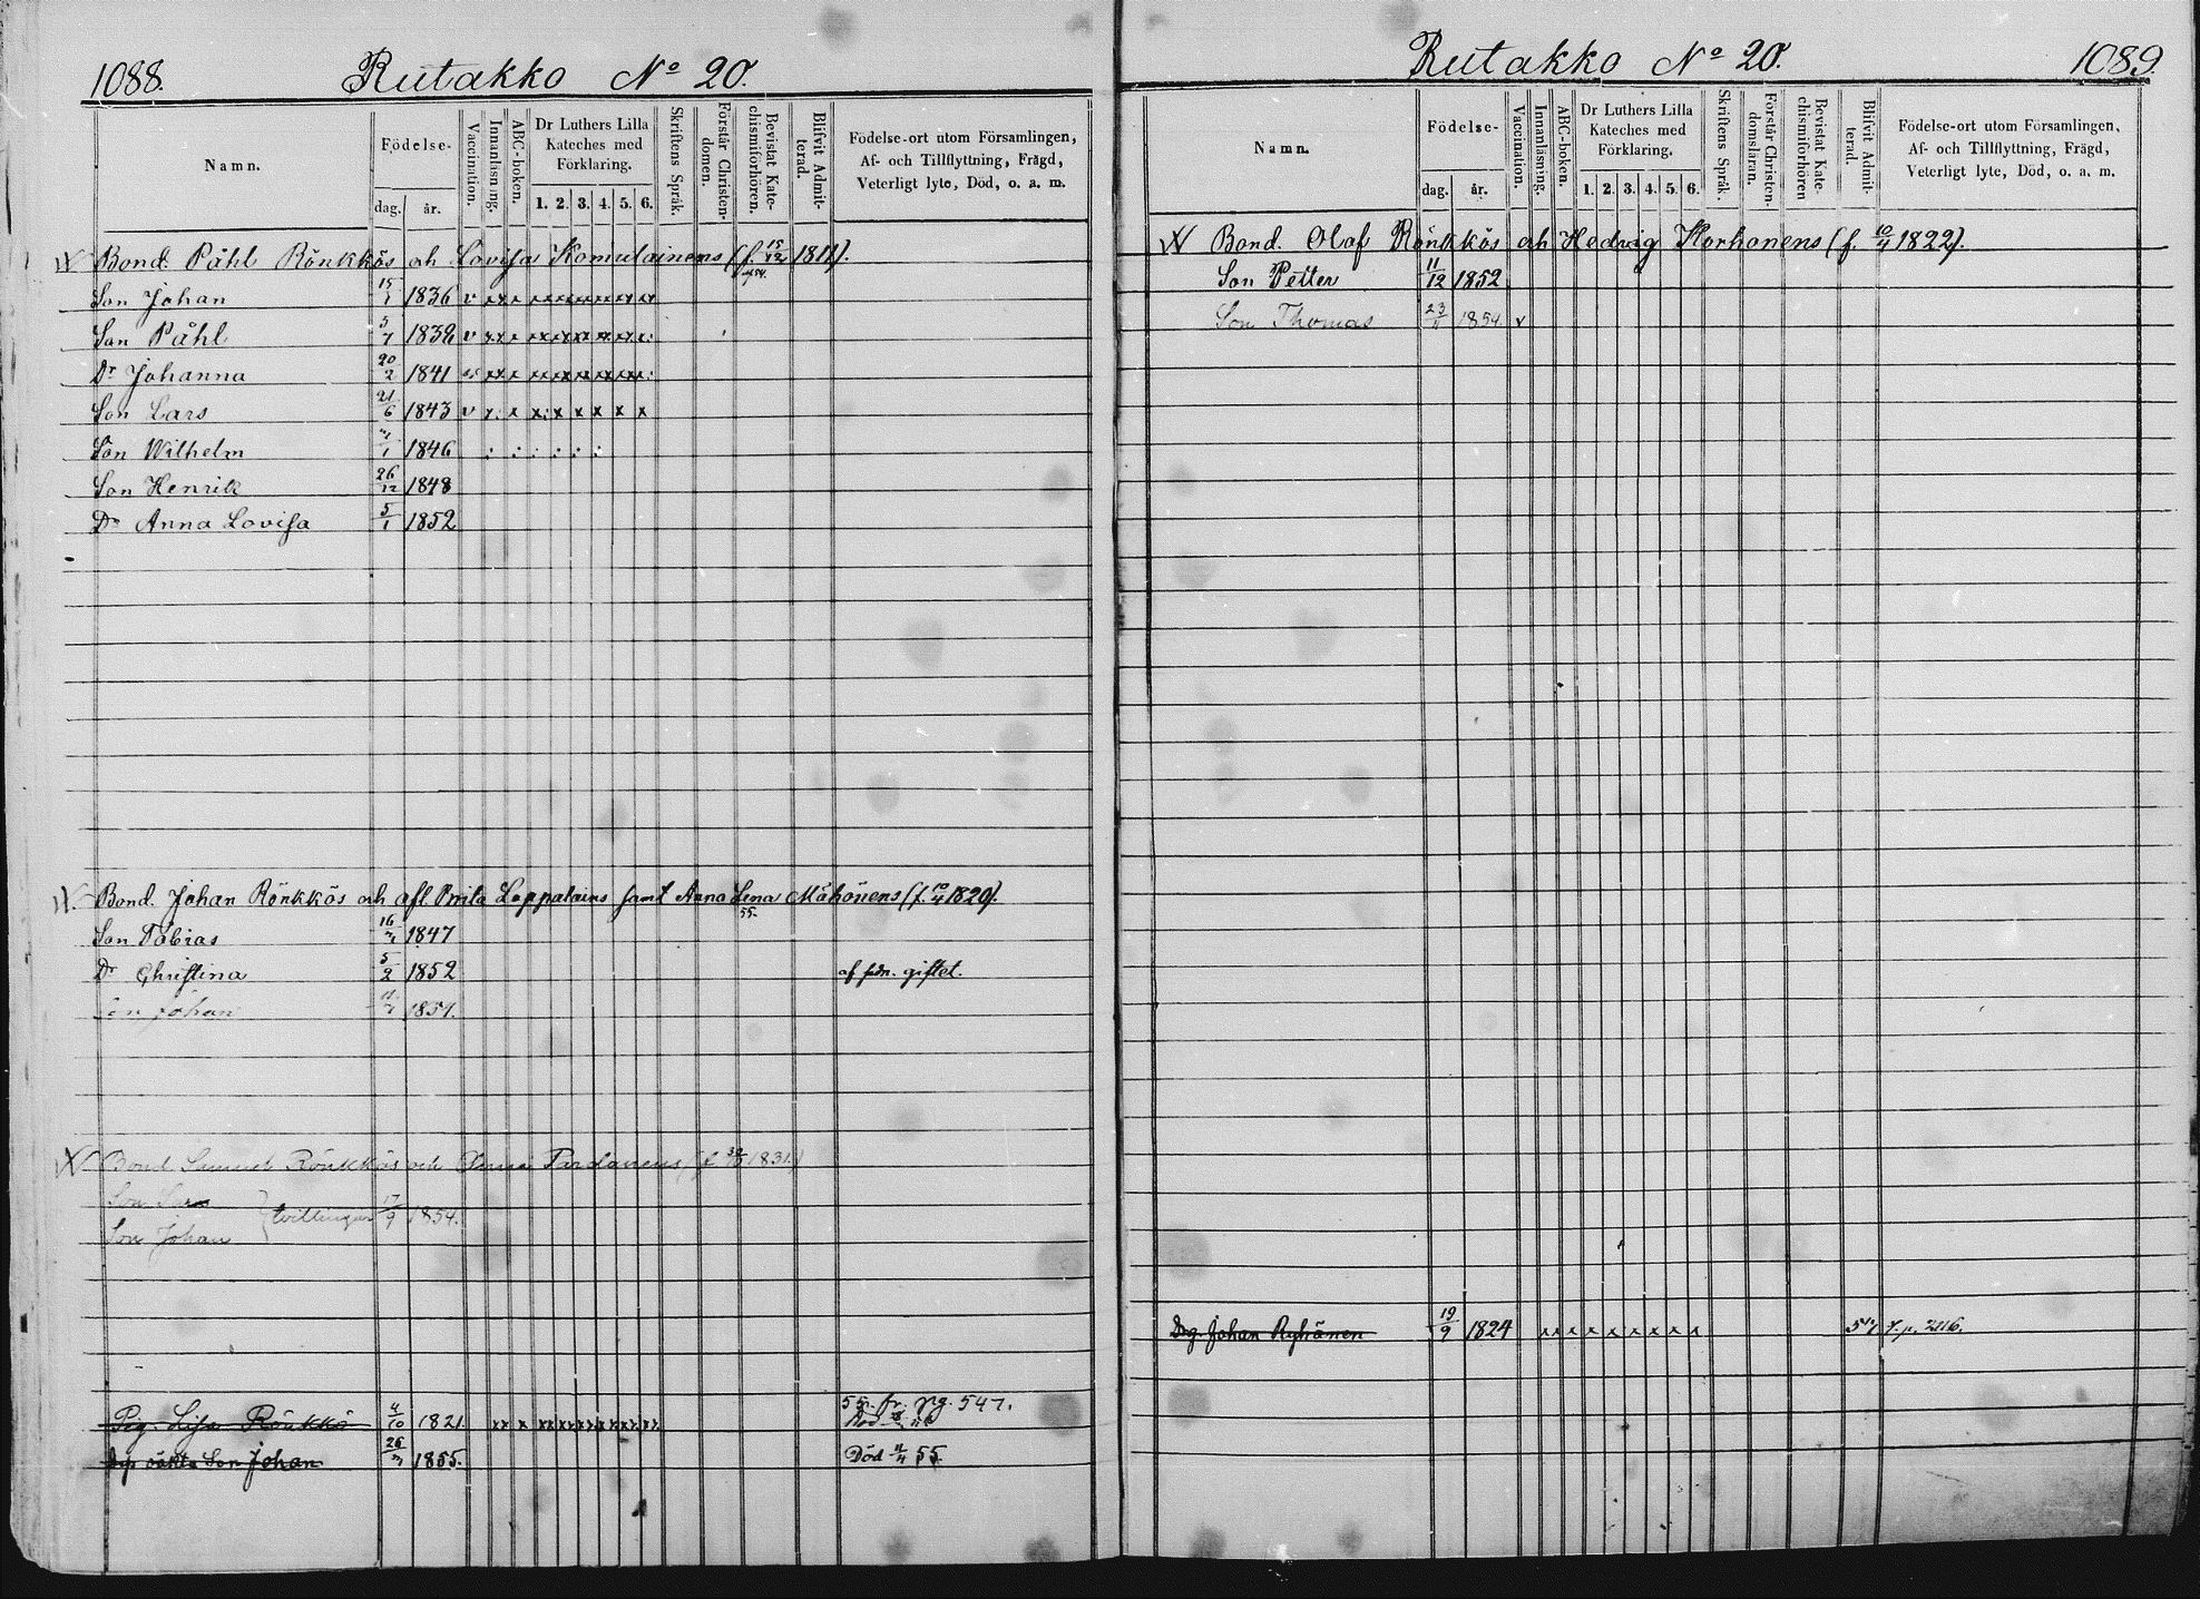 1088.
Rutakko No 20.
Namn.
Födelse-
dag.
år.
Vaccination.
Innanläsning.
ABC-boken.
Dr Luthers Lilla
Kateches med
Förklaring.
1. 2. 3. 4. 5. 6.
Skriftens Språk.
Förstår Christen-
domen.
Bevistat Kate-
chismiförhören.
Blifvit Admit-
terad.
Födelse-ort utom Församlingen,
Af- och Tillflyttning, Frägd,
Veterligt lyte, Död, o. a. m.
Bond. Påhl Rönkkös och Lovisa Komulainens (f. 15/12 1811).
Son Johan 15/1 1836 v
Son Påhl 1839 v
Dr Johanna 20/2 1841
Son Lars 21/6 1843 v
Son Wilhelm 1846
Son Henrik 26/12 1848
Dr Anna Lovisa 5/1 1852
Bond. Johan Rönkkös och afl. Brita Lappalains samt Anna Lena Mähönens (f. 10/4 1820).
55.
Son Tobias 1847
Dr Christina 5/2 1852 giftet.
Son Johan
Bond. Samuel Rönkkös och 1831)
Son
Son Johan
tvillingar 17/9 1854.
Pig. Lisa Rönkkö 4/10 1821. 55. fr. pg. 547.
Son Johan 1855. Död 11/4 55.
Rutakko No 20.
1089.
Namn.
Födelse-
dag.
år.
Vaccination.
Innanläsning.
ABC-boken.
Dr Luthers Lilla
Kateches med
Förklaring.
1. 2. 3. 4. 5. 6.
Skriftens Språk.
Förstår Christen-
domsläran.
Bevistat Kate-
chismiförhören
Blifvit Admit-
terad.
Födelse-ort utom Församlingen,
Af- och Tillflyttning, Frägd,
Veterligt lyte, Död, o. a. m.
Bond. Olof Rönkkös och Hedvig Korhonens (f. 10/4 1822).
Son Petter 11/12 1852
Son Thomas 23/11 1854. v
Drg. Johan Ryhänen 19/9 1824